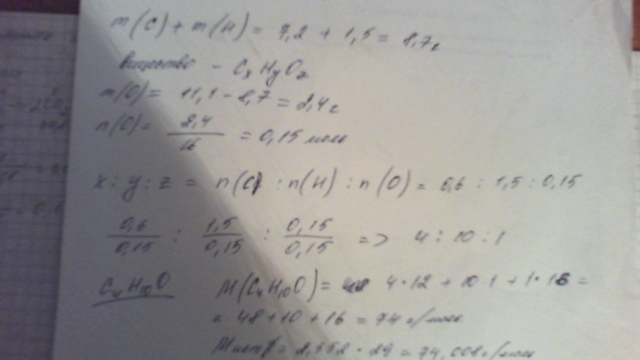 m(C) + m(H) = 7,2 + 1,5 = 8,7г
вещество - CxHyOz
m(O) = 11,1 - 8,7 = 2,4г
n(O) = 2,4/16 = 0,15 моль
x : y : z = n(C) : n(H) : n(O) = 0,6 : 1,5 : 0,15
0,6/0,15 : 1,5/0,15 : 0,15/0,15 => 4 : 10 : 1
C4H10O M(C4H10O) = 4·12 + 10·1 + 1·16 =
= 48 + 10 + 16 = 74 г/моль
Mист = 2,552 · 29 = 74,008 г/моль